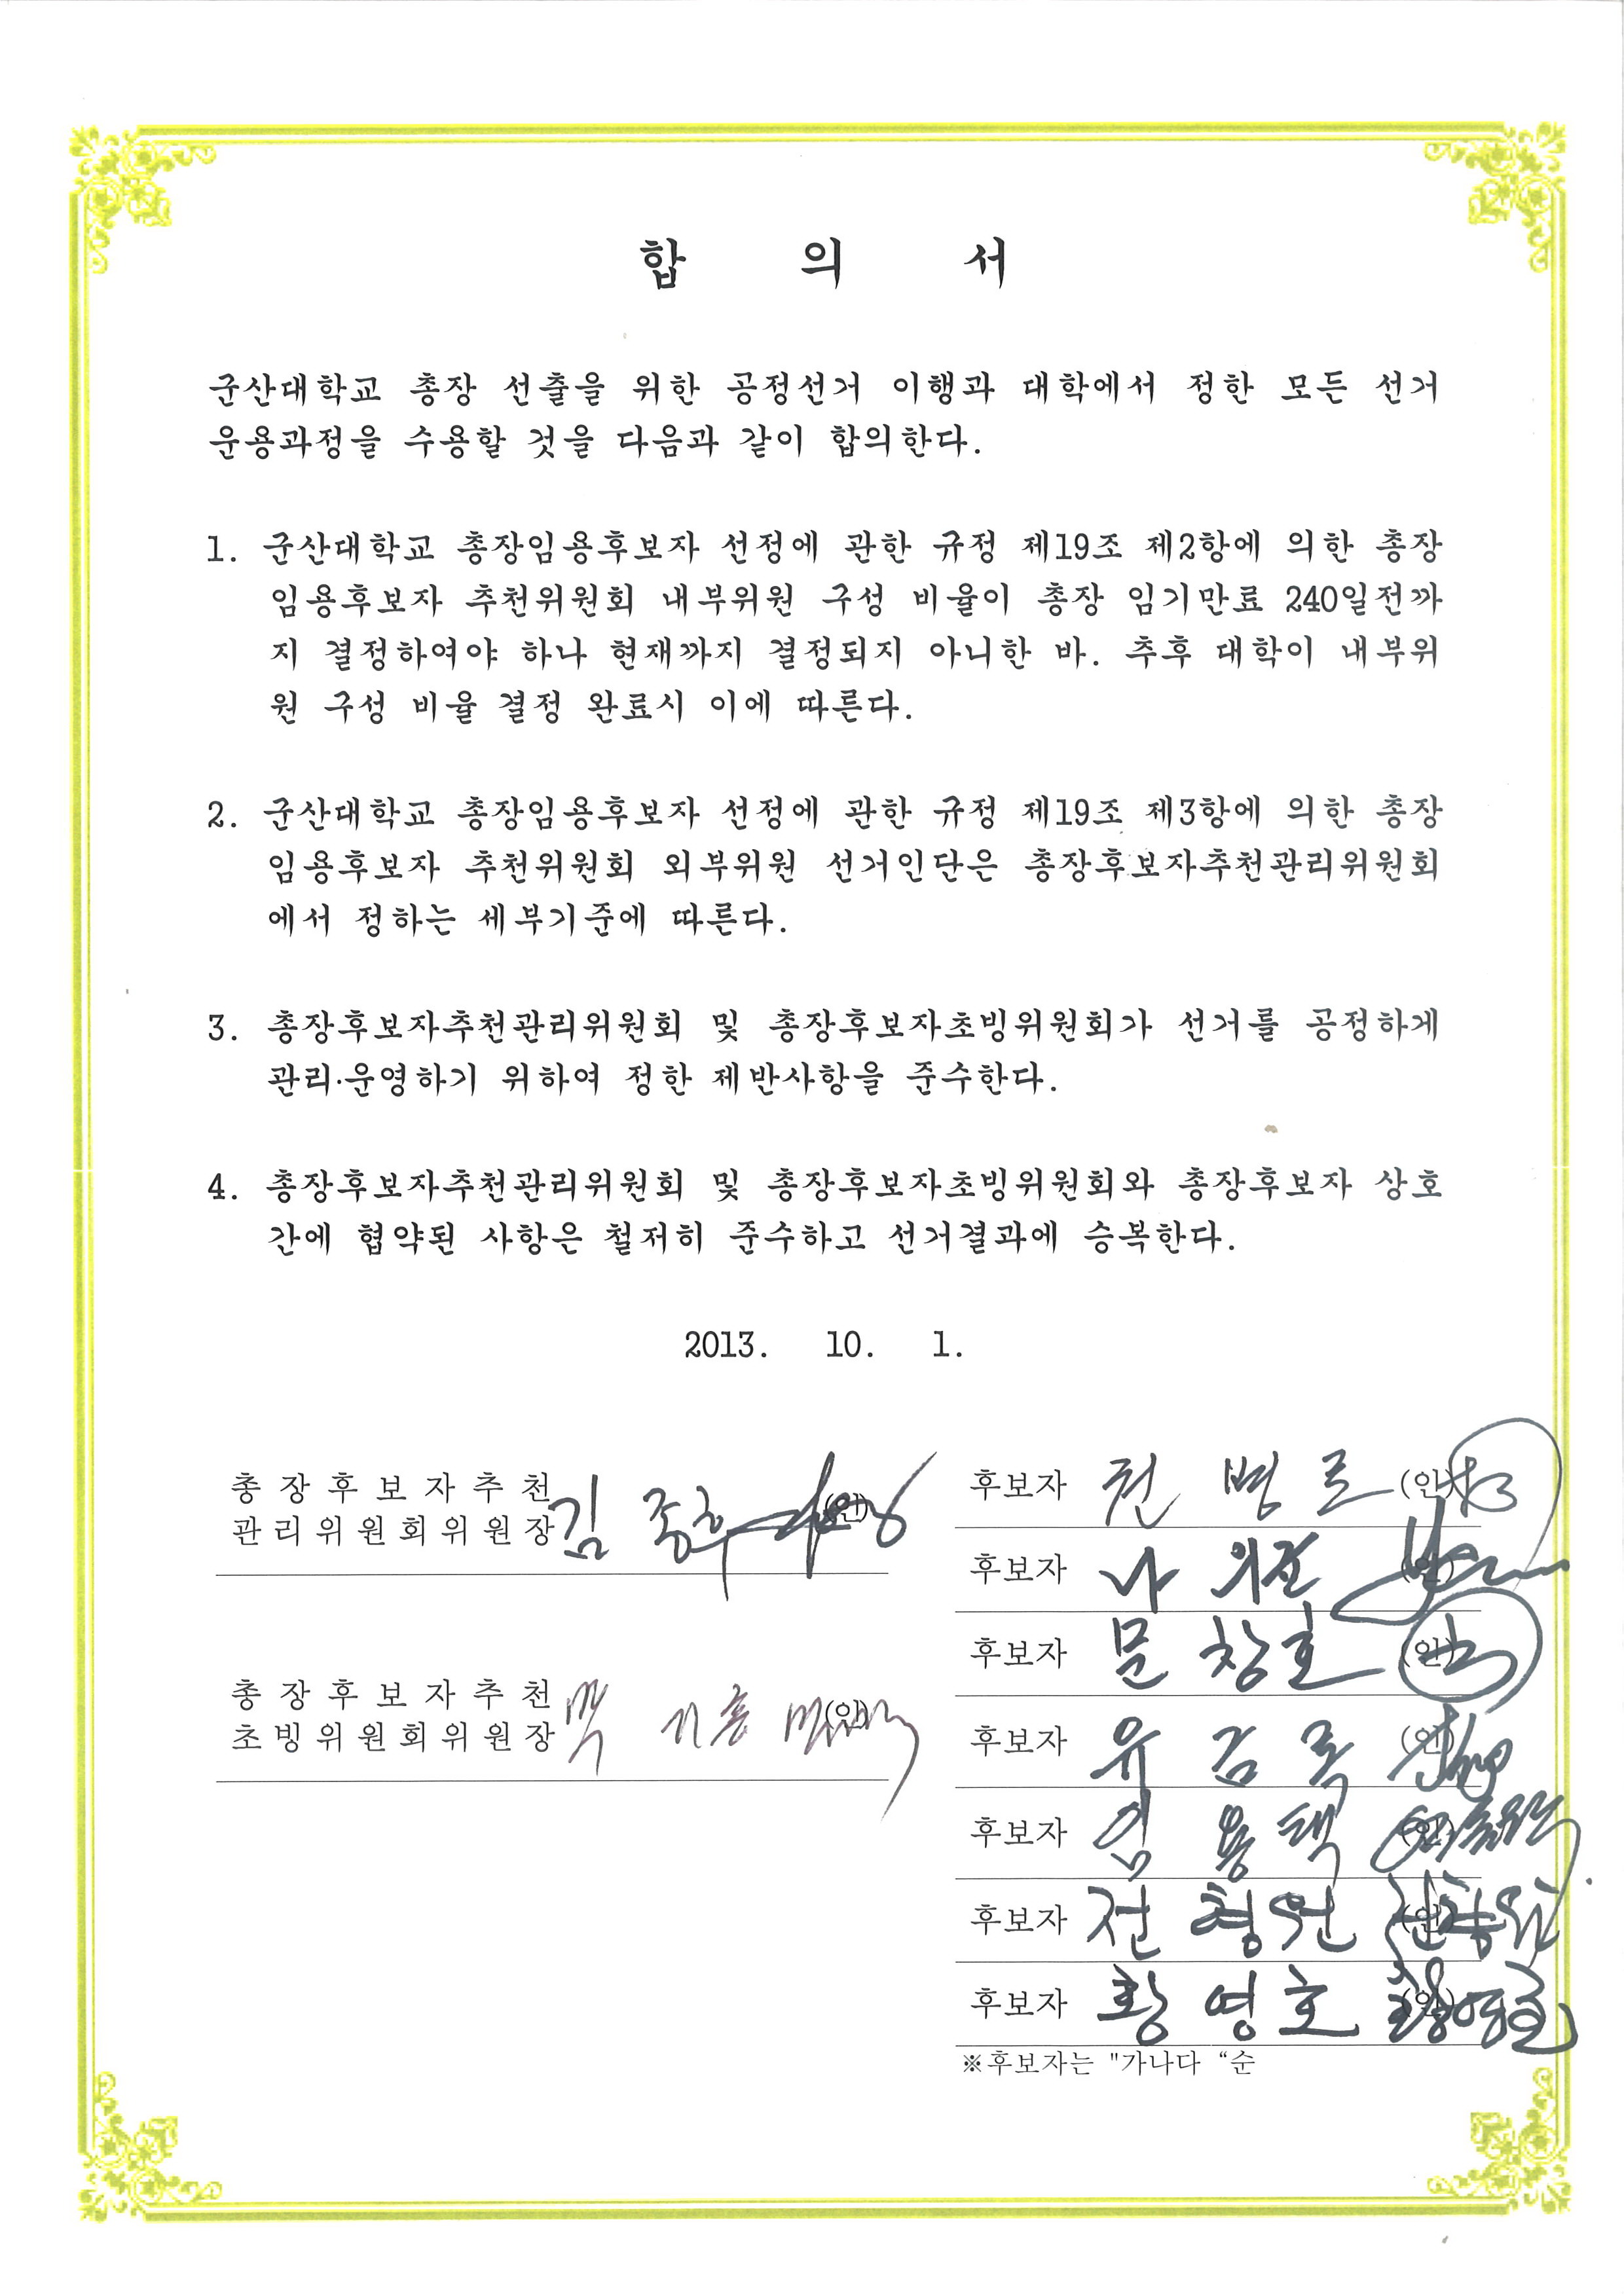 합 의 서
군산대학교 총장 선출을 위한 공정선거 이행과 대학에서 정한 모든 선거
운용과정을 수용할 것을 다음과 같이 합의한다.
1. 군산대학교 총장임용후보자 선정에 관한 규정 제19조 제2항에 의한 총장
임용후보자 추천위원회 내부위원 구성 비율이 총장 임기만료 240일전까
지 결정하여야 하나 현재까지 결정되지 아니한 바. 추후 대학이 내부위
원 구성 비율 결정 완료시 이에 따른다.
2. 군산대학교 총장임용후보자 선정에 관한 규정 제19조 제3항에 의한 총장
임용후보자 추천위원회 외부위원 선거인단은 총장후보자추천관리위원회
에서 정하는 세부기준에 따른다.
3. 총장후보자추천관리위원회 및 총장후보자초빙위원회가 선거를 공정하게
관리·운영하기 위하여 정한 제반사항을 준수한다.
4. 총장후보자추천관리위원회 및 총장후보자초빙위원회와 총장후보자 상호
간에 협약된 사항은 철저히 준수하고 선거결과에 승복한다.
2013. 10. 1.
총 장 후 보 자 추 천
관 리 위 원 회 위 원 장 김 종후 (인)
총 장 후 보 자 추 천
초 빙 위 원 회 위 원 장 (인)
후보자 (인)
후보자 나 의균 (인)
후보자 문 창호 (인)
후보자 유 (인)
후보자 임 용택 (인)
후보자 전 형원 (인)
후보자 황 영호 (인) 황영호
※후보자는 "가나다 “순